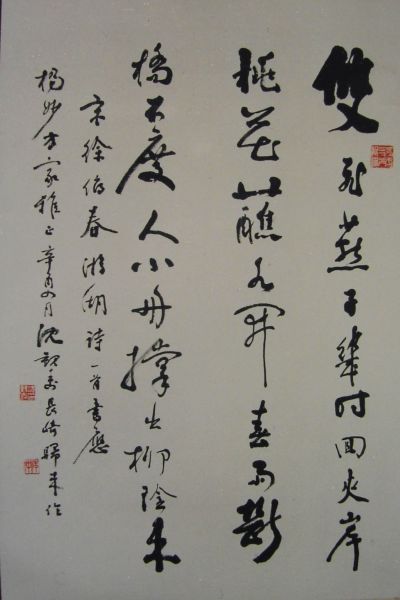 雙飛燕子幾時回夾岸
桃花蘸水開春雨斷
橋不度人小舟撐出柳陰來
宋徐俯春游湖詩一首書應
楊妙方家雅正辛酉四月沈覲壽長崎歸來作